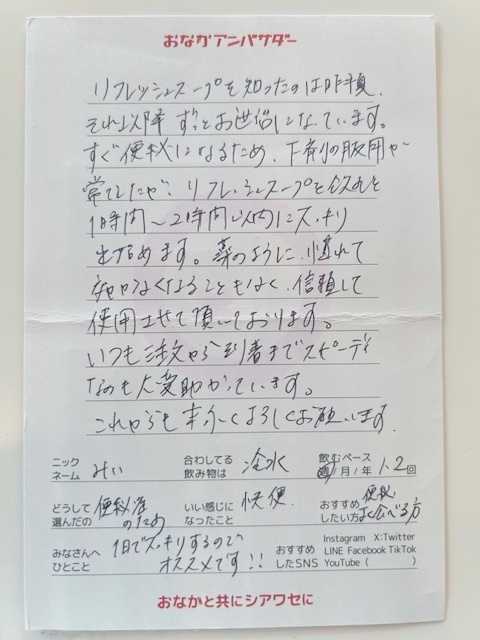 おなかアンバサダー
リフレッシュスープを知ったのは昨年頃、
それ以降 ずっとお世話になっています。
すぐ便秘になるため、下剤の服用が
常でしたが、リフレッシュスープを飲むと
1時間〜2時間以内にスッキリ
出始めます。薬のように、慣れて
効かなくなることもなく、信頼して
使用させて頂いております。
いつも注文から到着までスピーディ
なのも大変助かっています。
これからも末永くよろしくお願いします
ニックネーム みい 合わしてる飲み物は 冷水 飲むペース 週/月/年 1.2回
どうして選んだの 便秘症のため いい感じになったこと 快便 おすすめしたい方 便秘 よく食べる方
みなさんへひとこと 1日でスッキリするのでオススメです!! おすすめしたSNS Instagram X:Twitter LINE Facebook TikTok YouTube ( )
おなかと共にシアワセに